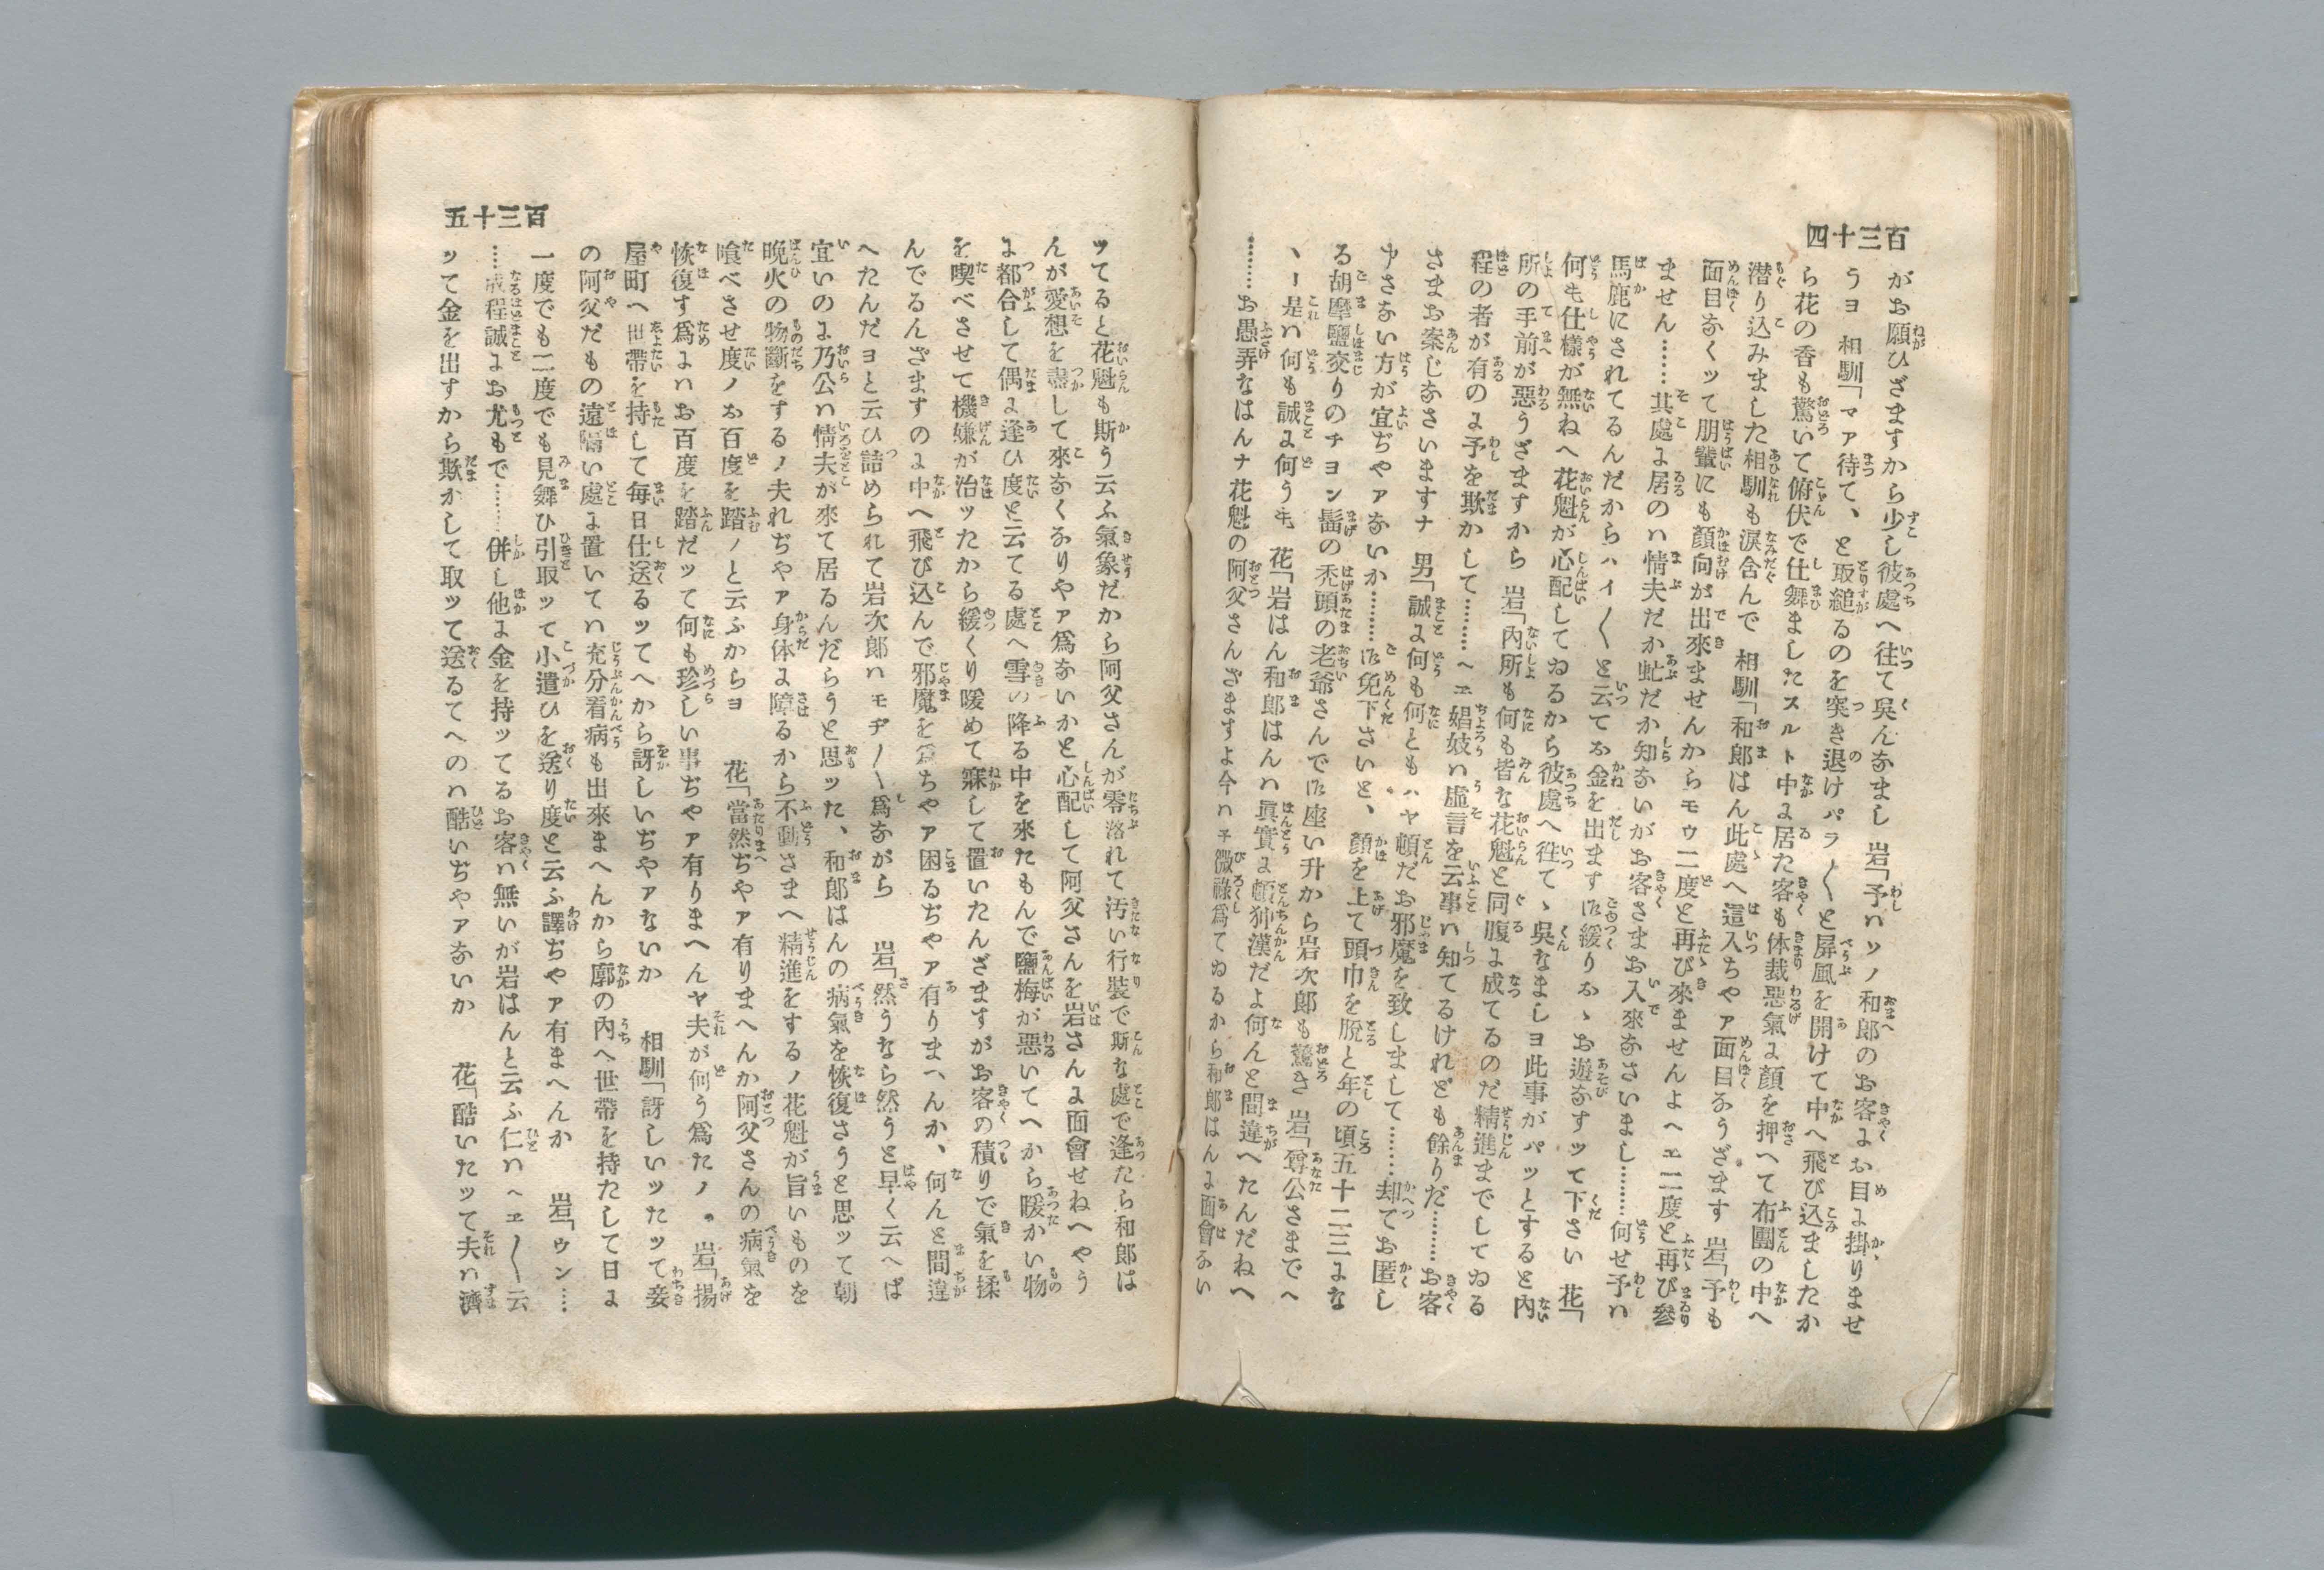 百三十四
がお願ひざますから少し彼處へ往て吳んなまし 岩「予ハソノ和郎のお客よお目よ掛りませ
うヨ 相馴「マア待て、と取縋るのを突き退けパラ〱と屏風を開けて中へ飛び込ましたか
ら花の香も驚いて俯伏で仕舞ましたスルト中よ居た客も体裁惡氣よ顏を押へて布團の中へ
潜り込みました相馴も淚含んで 相馴「和郎はん此處へ這入ちやア面目なうざます 岩「予も
面目なくッて朋輩にも顏向が出來ませんからモウ二度と再び來ませんよヘエ二度と再び參
ません……其處よ居るのハ情夫だか虻だか知ないがお客さまお入來なさいまし……何せ予ハ
馬鹿にされてるんだからハイ〱と云てお金を出ます氵緩りおゝお遊なすッて下さい 花「
何も仕樣が無ねへ花魁が心配してゐるから彼處へ往てゝ吳なましヨ此事がパッとすると內
所の手前が惡うざますから 岩「內所も何も皆な花魁と同腹よ成てるのだ精進までしてゐる
程の者が有のよ予を欺かして………ヘエ娼妓ハ虛言を云事ハ知てるけれども餘りだ………お客
さまお案じなさいますナ 男「誠よ何も何ともハヤ頓だお邪魔を致しまして………却てお匿し
申さない方が宜ぢやアないか………御免下さいと、顏を上て頭巾を脫と年の頃五十二三よな
る胡摩鹽交りのチヨン髷の禿頭の老爺さんで御座い升から岩次郎も驚き 岩「尊公さまでヘ
、ー是ハ何も誠よ何うも 花「岩はん和郎はんハ眞實よ頓狆漢だよ何んと間違へたんだねへ
………お愚弄なはんナ花魁の阿父さんざますよ今ハチ微祿爲てゐるから和郎はんよ面會ない
百三十五
ッてると花魁も斯う云ふ氣象だから阿父さんが零落れて汚い行裝で斯な處で逢たら和郎は
んが愛想を盡して來なくなりやア爲ないかと心配して阿父さんを岩さんよ面會せねへやう
よ都合して偶よ逢ひ度と云てる處へ雪の降る中を來たもんで鹽梅が惡いてへから暖かい物
を喫べさせて機嫌が治ッたから緩くり暖めて寐して置いたんざますがお客の積りで氣を揉
んでるんざますのよ中へ飛び込んで邪魔を爲ちやア困るぢやア有りまへんか、何んと間違
へたんだヨと云ひ詰められて岩次郎ハモヂ〱爲ながら 岩「然うなら然うと早く云へば
宜いのよ乃公ハ情夫が來て居るんだらうと思ッた、和郎はんの病氣を恢復さうと思ッて朝
晩火の物斷をするノ夫れぢやア身体よ障るから不動さまへ精進をするノ花魁が旨いものを
喰べさせ度ノお百度を踏ノと云ふからヨ 花「當然ぢやア有りまへんか阿父さんの病氣を
恢復す爲よハお百度を踏だッて何も珍しい事ぢやア有りまへんヤ夫が何う爲たノ。 岩「揚
屋町へ世帶を持して每日仕送るッてへから訝しいぢやアないか 相馴「訝しいッたッて妾
の阿父だもの遠隔い處よ置いてハ充分看病も出來まへんから廓の內へ世帶を持たして日よ
一度でも二度でも見舞ひ引取ッて小遣ひを送り度と云ふ譯ぢやア有まへんか 岩「ウン……
……成程誠よお尤もで………併し他よ金を持ッてるお客ハ無いが岩はんと云ふ仁ハヘエ〱云
ッて金を出すから欺かして取ッて送るてへのハ酷いぢやアないか 花「酷いたッて夫ハ濟